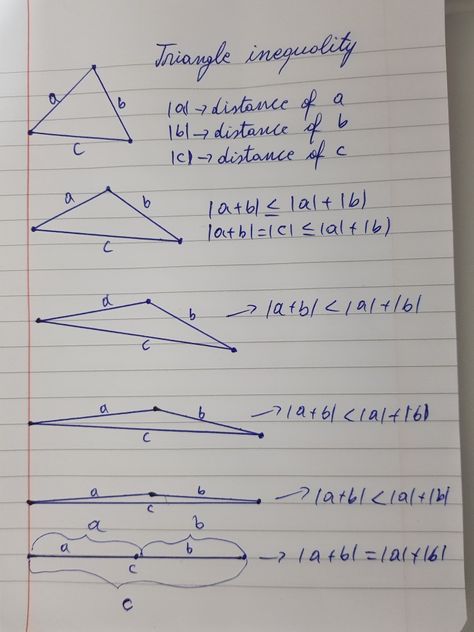 Triangle inequality
a
b
c
|a| → distance of a
|b| → distance of b
|c| → distance of c
a
b
c
|a+b| ≤ |a|+|b|
|a+b|=|c| ≤ |a|+|b|
a
b
c
→ |a+b| < |a|+|b|
a
b
c
→ |a+b| < |a|+|b|
a
b
c
→ |a+b| < |a|+|b|
a
b
a
b
c
→ |a+b| = |a|+|b|
c